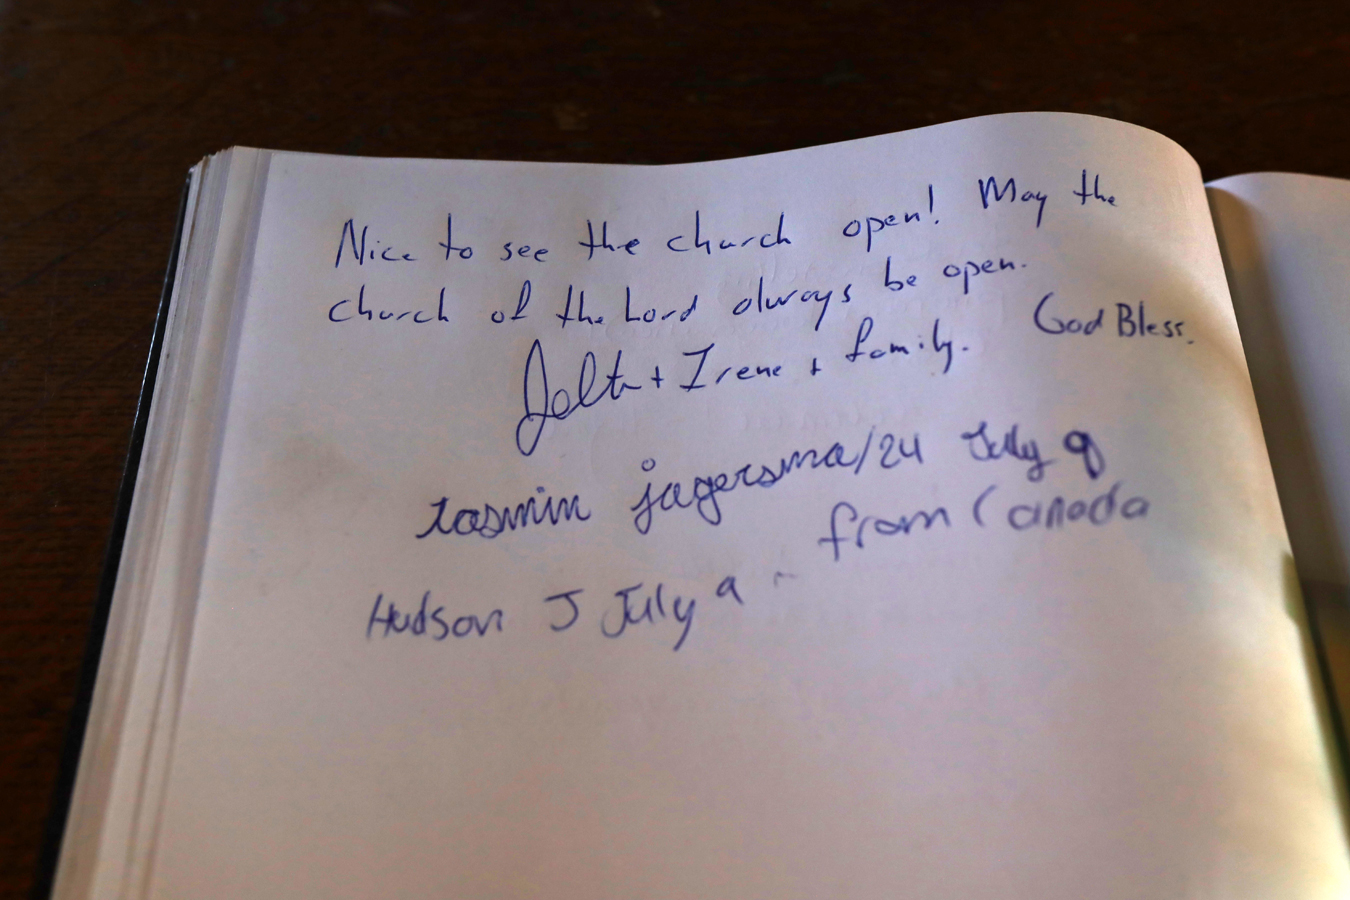 Nice to see the church open! May the
church of the Lord always be open.
God Bless.
Jelt + Irene + family.
tasmin jagersma/24 July 9
from Canada
Hudson J July 9